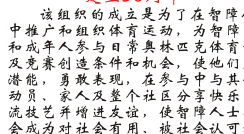 该组织的成立是为了在智障
中推广和组织体育运动，为智障
和成年人参与日常奥林匹克体育
及竞赛创造条件和机会，使他们
潜能，勇敢表现，在参与中与其
动员、家人及整个社区分享快乐
流技艺并增进友谊，使智障人士
会成为对社会有用、被社会认